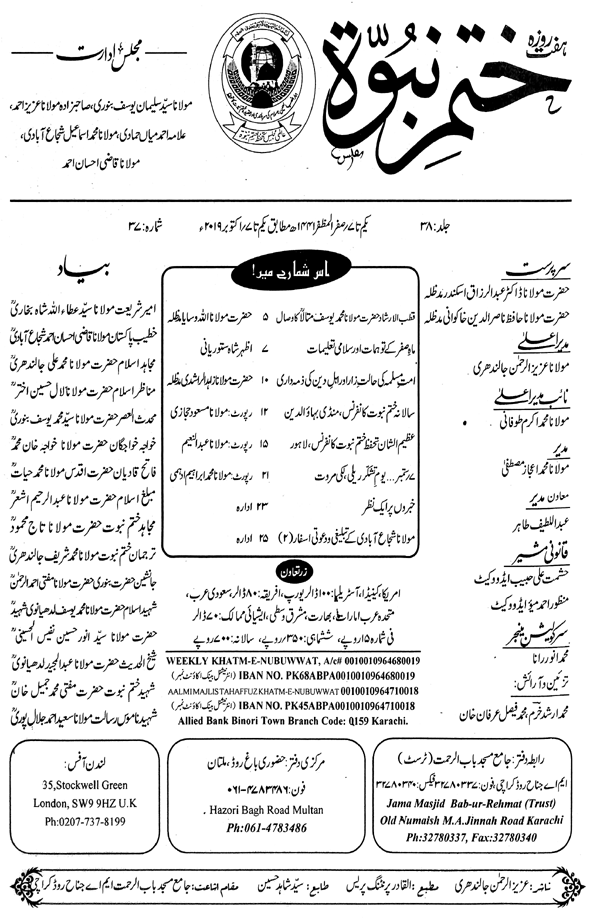 ہفت روزہ
ختم نبوّة
مجلس ادارت
مولانا سیّد سلیمان یوسف بنوری، صاحبزادہ مولانا عزیز احمد،
علامہ احمد میاں حمادی، مولانا محمد اسماعیل شجاع آبادی،
مولانا قاضی احسان احمد
جلد: ۳۸
یکم تا ۷/صفر المظفر ۱۴۴۱ھ مطابق یکم تا ۷/اکتوبر ۲۰۱۹ء
شمارہ: ۳۷
سرپرست
حضرت مولانا ڈاکٹر عبدالرزاق اسکندر مدظلہ
حضرت مولانا حافظ ناصر الدین خاکوانی مدظلہ
مدیر اعلےٰ
مولانا عزیز الرحمٰن جالندھری
نائب مدیر اعلےٰ
مولانا محمد اکرم طوفانی
مدیر
مولانا محمد اعجاز مصطفیٰ
معاون مدیر
عبداللطیف طاہر
قانونی مشیر
حشمت علی حبیب ایڈووکیٹ
منظور احمد میؤ ایڈووکیٹ
سرکولیشن منیجر
محمد انور رانا
تزئین و آرائش:
محمد ارشد خرم، محمد فیصل عرفان خان
اس شمارے میں!
قطب الارشاد حضرت مولانا محمد یوسف متالاؒ کا وصال ۵ حضرت مولانا اللہ وسایا مدظلہ
ماہِ صفر کے توہمات اور اسلامی تعلیمات ۷ اظہر شاہ ستوریانی
امت مسلمہ کی حالتِ زار اور اہل دین کی ذمہ داری ۱۰ حضرت مولانا زاہد الراشدی مدظلہ
سالانہ ختم نبوت کانفرنس، منڈی بہاؤ الدین ۱۲ رپورٹ: مولانا مسعود حجازی
عظیم الشان تحفظ ختم نبوت کانفرنس، لاہور ۱۵ رپورٹ: مولانا عبدالنعیم
۷/ستمبر... یوم تشکر ریلی، لکی مروت ۲۱ رپورٹ: مولانا محمد ابراہیم ادہمی
خبروں پر ایک نظر ۲۳ ادارہ
مولانا شجاع آبادی کے تبلیغی و دعوتی اسفار (۲) ۲۵ ادارہ
زرتعاون
امریکا، کینیڈا، آسٹریلیا: ۱۰۰ ڈالر یورپ، افریقہ: ۸۰ ڈالر، سعودی عرب،
متحدہ عرب امارات، بھارت، مشرق وسطیٰ، ایشیائی ممالک: ۷۰ ڈالر
فی شمارہ ۱۵ روپے، ششماہی: ۳۵۰ روپے، سالانہ: ۷۰۰ روپے
WEEKLY KHATM-E-NUBUWWAT, A/c# 0010010964680019
IBAN NO. PK68ABPA0010010964680019 (انٹرنیشنل بینک اکاؤنٹ نمبر)
AALMIMAJLISTAHAFFUZKHATM-E-NUBUWWAT 0010010964710018
IBAN NO. PK45ABPA0010010964710018 (انٹرنیشنل بینک اکاؤنٹ نمبر)
Allied Bank Binori Town Branch Code: 0159 Karachi.
بیاد
امیر شریعت مولانا سیّد عطاء اللہ شاہ بخاریؒ
خطیب پاکستان مولانا قاضی احسان احمد شجاع آبادیؒ
مجاہد اسلام حضرت مولانا محمد علی جالندھریؒ
مناظر اسلام حضرت مولانا لال حسین اخترؒ
محدث العصر حضرت مولانا سیّد محمد یوسف بنوریؒ
خواجہ خواجگان حضرت مولانا خواجہ خان محمدؒ
فاتح قادیان حضرت اقدس مولانا محمد حیاتؒ
مبلغ اسلام حضرت مولانا عبدالرحیم اشعرؒ
مجاہد ختم نبوت حضرت مولانا تاج محمودؒ
ترجمان ختم نبوت حضرت مولانا محمد شریف جالندھریؒ
جانشین حضرت بنوری حضرت مولانا مفتی احمد الرحمٰنؒ
شہید اسلام حضرت مولانا محمد یوسف لدھیانوی شہیدؒ
حضرت مولانا سیّد انور حسین نفیس الحسینیؒ
شیخ الحدیث حضرت مولانا عبدالمجید لدھیانویؒ
شہید ختم نبوت حضرت مفتی محمد جمیل خانؒ
شہید ناموس رسالت مولانا سعید احمد جلال پوریؒ
رابطہ دفتر: جامع مسجد باب الرحمت (ٹرسٹ)
ایم اے جناح روڈ کراچی، فون: ۳۲۷۸۰۳۳۷ فیکس: ۳۲۷۸۰۳۴۰
Jama Masjid Bab-ur-Rehmat (Trust)
Old Numaish M.A.Jinnah Road Karachi
Ph:32780337, Fax:32780340
مرکزی دفتر: حضوری باغ روڈ، ملتان
فون: ۰۶۱-۴۷۸۳۴۸۶
Hazori Bagh Road Multan
Ph:061-4783486
لندن آفس:
35,Stockwell Green
London, SW9 9HZ U.K
Ph:0207-737-8199
ناشر: عزیز الرحمٰن جالندھری مطبع: القادر پرنٹنگ پریس طابع: سیّد شاہد حسین مقام اشاعت: جامع مسجد باب الرحمت ایم اے جناح روڈ کراچی